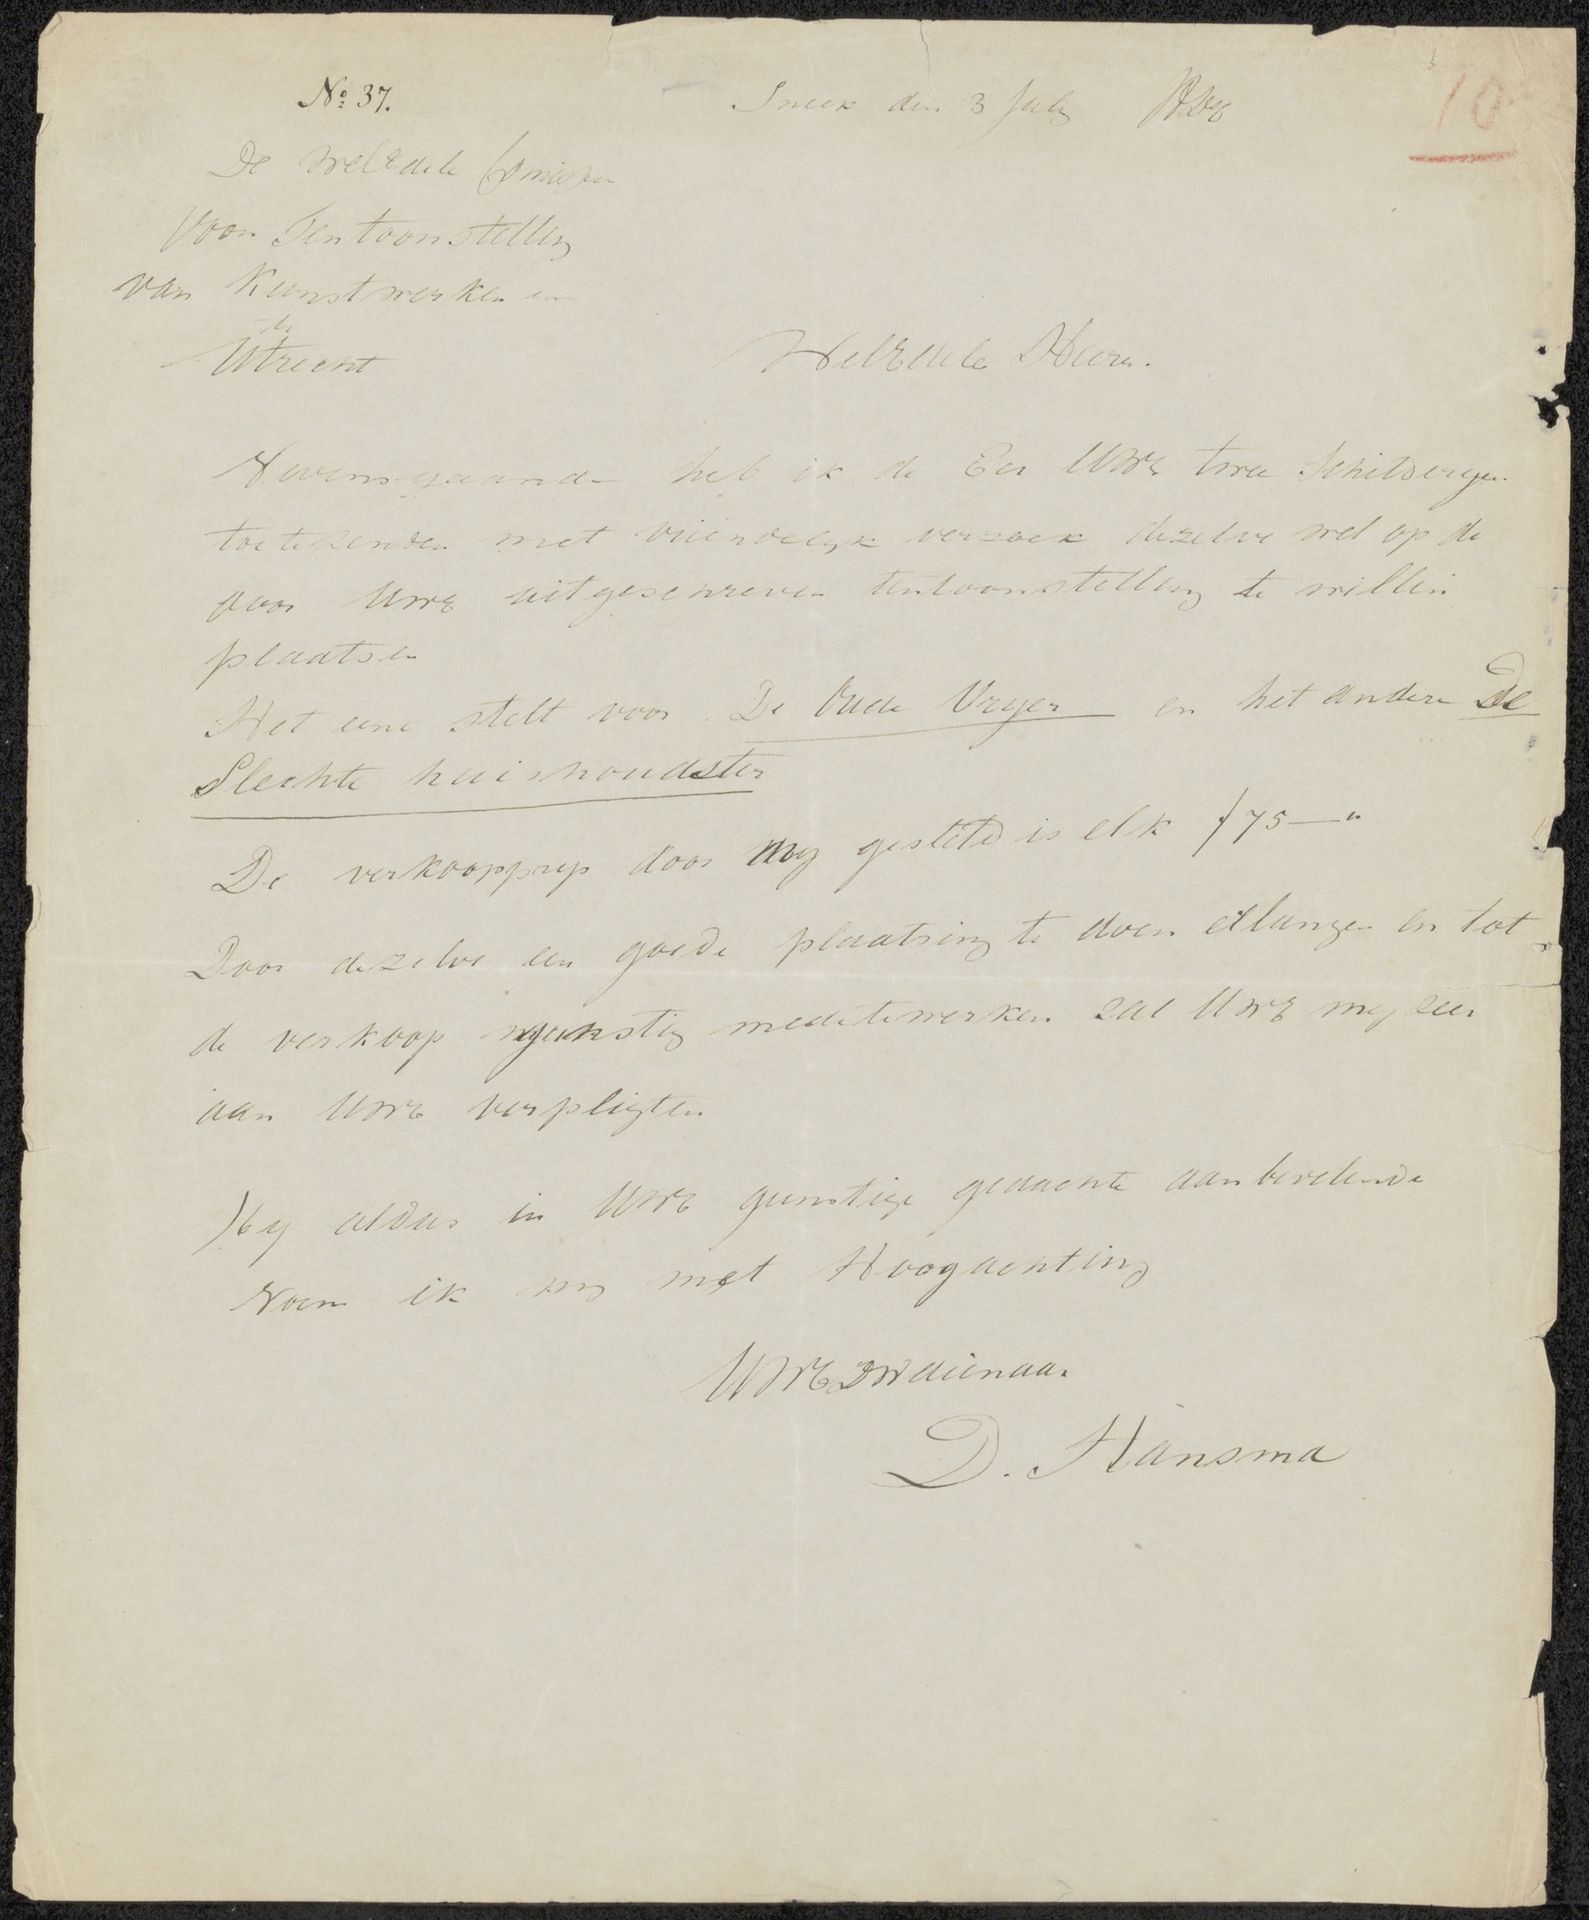 No: 37.
Sneek den 3 July
10
De WelEdele
voor Tentoonstelling
van Kunstwerken
te
Utrecht
WelEdele Heeren.
Nevensgaande heb ik de Eer UWE twee Schilderyen
toe te zenden met vriendelyk verzoek dezelve wel op de
door UWE uitgeschreven tentoonstelling te willen
plaatsen
Het eene stelt voor De Oude Vryer en het andere De
Slechte huishoudster
De verkoopprys door my gesteld is elk f 75—"
Door dezelve een goede plaatsing te doen erlangen en tot
de verkoop gunstig medetewerken zal UWE my zeer
aan UWE verpligten
My aldus in UWE gunstige gedachte aanbevelende
Noem ik my met Hoogachting
UWEDWdienaar
D. Hansma